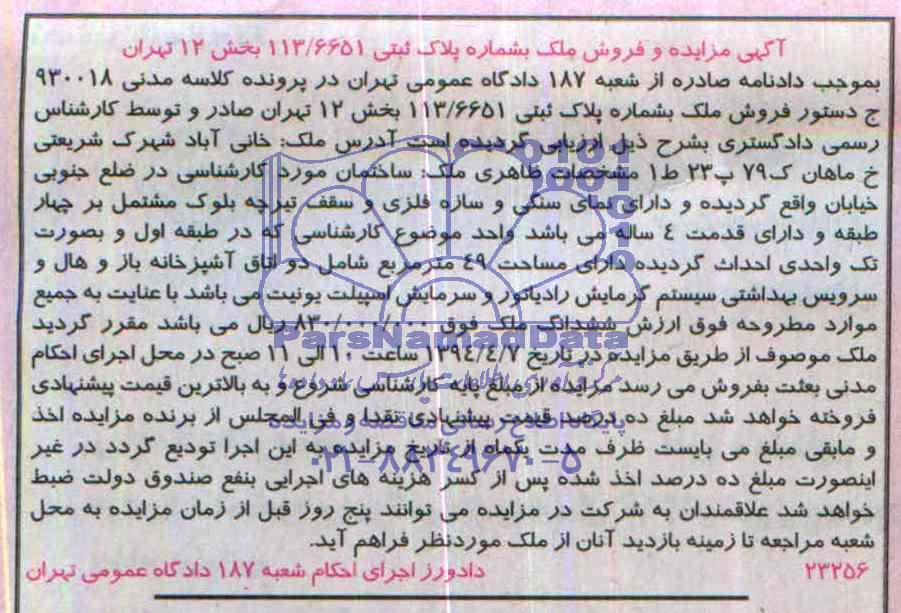 آگهی مزایده و فروش ملک بشماره پلاک ثبتی ۱۱۳/۶۶۵۱ بخش ۱۲ تهران
بموجب دادنامه صادره از شعبه ۱۸۷ دادگاه عمومی تهران در پرونده کلاسه مدنی ۹۳۰۰۱۸
ج دستور فروش ملک بشماره پلاک ثبتی ۱۱۳/۶۶۵۱ بخش ۱۲ تهران صادر و توسط کارشناس
رسمی دادگستری بشرح ذیل ارزیابی گردیده است آدرس ملک: خانی آباد شهرک شریعتی
خ ماهان ک۷۹ پ۲۳ ط۱ مشخصات ظاهری ملک: ساختمان مورد کارشناسی در ضلع جنوبی
خیابان واقع گردیده و دارای نمای سنگی و سازه فلزی و سقف تیرچه بلوک مشتمل بر چهار
طبقه و دارای قدمت ٤ ساله می باشد واحد موضوع کارشناسی که در طبقه اول و بصورت
تک واحدی احداث گردیده دارای مساحت ٤۹ مترمربع شامل دو اتاق آشپزخانه باز و هال و
سرویس بهداشتی سیستم گرمایش رادیاتور و سرمایش اسپیلت یونیت می باشد با عنایت به جمیع
موارد مطروحه فوق ارزش ششدانگ ملک فوق ۸۳۰/۰۰۰/۰۰۰ ریال می باشد مقرر گردید
ملک موصوف از طریق مزایده در تاریخ ۱۳۹٤/٤/۷ ساعت ۱۰ الی ۱۱ صبح در محل اجرای احکام
مدنی بعثت بفروش می رسد مزایده از مبلغ پایه کارشناسی شروع و به بالاترین قیمت پیشنهادی
فروخته خواهد شد مبلغ ده درصد قیمت پیشنهادی نقدا و فی المجلس از برنده مزایده اخذ
و مابقی مبلغ می بایست ظرف مدت یکماه از تاریخ مزایده به این اجرا تودیع گردد در غیر
اینصورت مبلغ ده درصد اخذ شده پس از کسر هزینه های اجرایی بنفع صندوق دولت ضبط
خواهد شد علاقمندان به شرکت در مزایده می توانند پنج روز قبل از زمان مزایده به محل
شعبه مراجعه تا زمینه بازدید آنان از ملک موردنظر فراهم آید.
۲۳۲۵۶ دادورز اجرای احکام شعبه ۱۸۷ دادگاه عمومی تهران
ParsNamadData
پایگاه اطلاع رسانی مناقصه و مزایده
۰۲۱-۸۸۳٤۹۶۷۰-۵